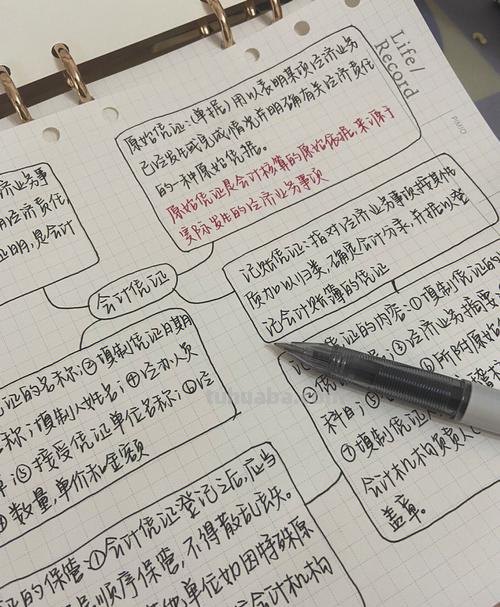 Life/
Record
原始凭证:(单据)用以表明某项经济业务
已经发生或完成情况并明确有关经济责任
的一种原始凭据。
原始凭证是会计核算的原始依据,来源于
实际发生的经济业务事项
济业务事
经济责任
证明,是会计
会计凭证
记账凭证:指对经济业务事项按其性
质加以归类,确定会计分录,并据以登
记会计账簿的凭证
证的名称;②填制凭证日期
名称;填制人姓名;④经办人员
⑤接受凭证单位名称;⑥经
数量,单价和金额
凭证的内容:①填制凭证的
③经济业务摘要
科目;⑤
⑥所附原始
⑦填制凭证人
会计机构负责人
盖章。
证的保管:①会计凭证登记之后,应当
顺序保管,不得散乱丢失。
单位如因特殊原
会计机构
tuhuaba